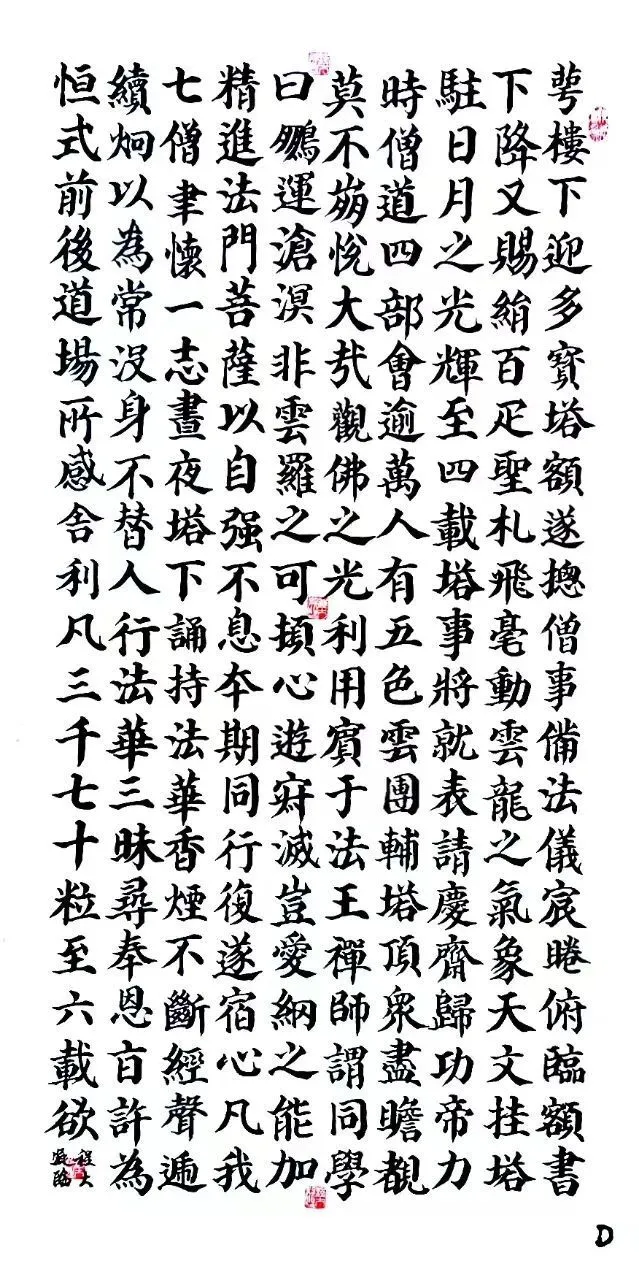 萼樓下迎多寶塔額遂摠僧事備法儀宸睠俯臨額書
下降又賜絹百疋聖札飛毫動雲龍之氣象天文挂塔
駐日月之光輝至四載塔事將就表請慶齋歸功帝力
時僧道四部會逾萬人有五色雲團輔塔頂眾盡瞻覩
莫不崩悅大哉觀佛之光利用賓于法王禪師謂同學
曰鵬運滄溟非雲羅之可頓心遊寂滅豈愛網之能加
精進法門菩薩以自强不息本期同行復遂宿心凡我
七僧聿懷一志晝夜塔下誦持法華香煙不斷經聲遞
續炯以為常沒身不替人行法華三昧尋奉恩旨許為
恒式前後道場所感舍利凡三千七十粒至六載欲
程大
臨
D